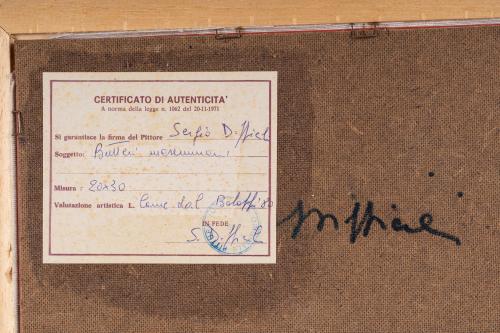 CERTIFICATO DI AUTENTICITA'
A norma della legge n. 1062 del 20-11-1971
Si garantisce la firma del Pittore Sergio Difficili
Soggetto: Butteri maremmani
Misura : 20x30
Valorazione artistica L. Come dal Bolaffi 80
IN FEDE
S. Difficili